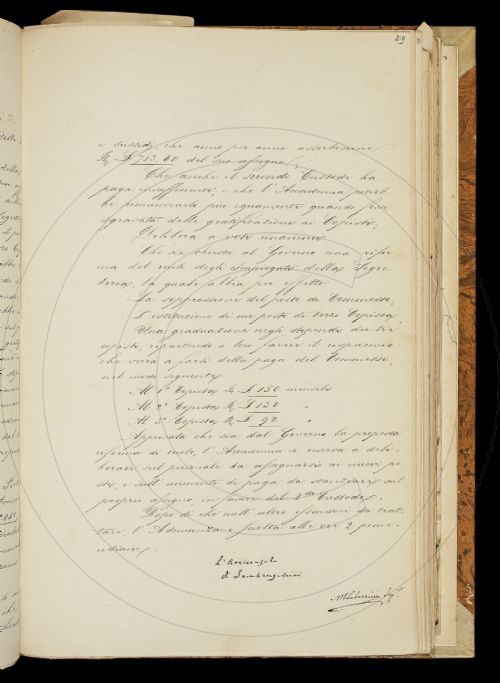 e sussidj che anno per anno assorbiscono
£ 713.60 del suo assegno;
Che anche il secondo Custode ha
paga insufficiente, e che l'Accademia potrebbe
be rimunerarlo più equamente quando fosse
sgravata delle gratificazioni ai Copisti,
Delibera a voti unanimi
Che sia chiesta al Governo una riforma
ma del ruolo degli impiegati della Segreteria
teria, la quale abbia per effetto
La soppressione del posto di Commesso,
L'istituzione di un posto di terzo Copista,
Una graduazione negli stipendi dei tre
copisti, repartendo a loro favore il risparmio
che verrà a farsi della paga del Commesso,
nel modo seguente
Al 1° Copista £ 150 mensili
Al 2° Copista £ 130 "
Al 3° Copista £ 92 "
Approvata che sia dal Governo la proposta
riforma di ruolo, l'Accademia si riserva a deliberare
sul personale da
e sull'aumento di paga da stanziare sul
proprio assegno in favore del 2° Custode.
Dopo di che null'altro essendovi da trattare
tare, l'Adunanza è sciolta alle ore 2 pomeridiane
ridiane.
L'Arciconsolo
R Lambruschini